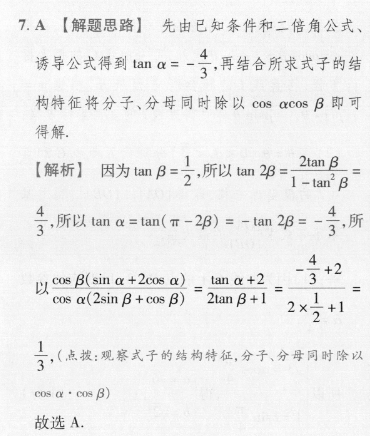 7. A 【解题思路】 先由已知条件和二倍角公式、
诱导公式得到 tan α = -4/3,再结合所求式子的结
构特征将分子、分母同时除以 cos αcos β 即可
得解.
【解析】 因为 tan β = 1/2,所以 tan 2β = 2tan β/(1 - tan² β) =
4/3,所以 tan α = tan(π - 2β) = - tan 2β = -4/3,所
以 cos β(sin α + 2cos α)/cos α(2sin β + cos β) = (tan α + 2)/(2tan β + 1) = (-4/3 + 2)/(2 × 1/2 + 1) =
1/3,(点拨:观察式子的结构特征,分子、分母同时除以
cos α · cos β)
故选 A.